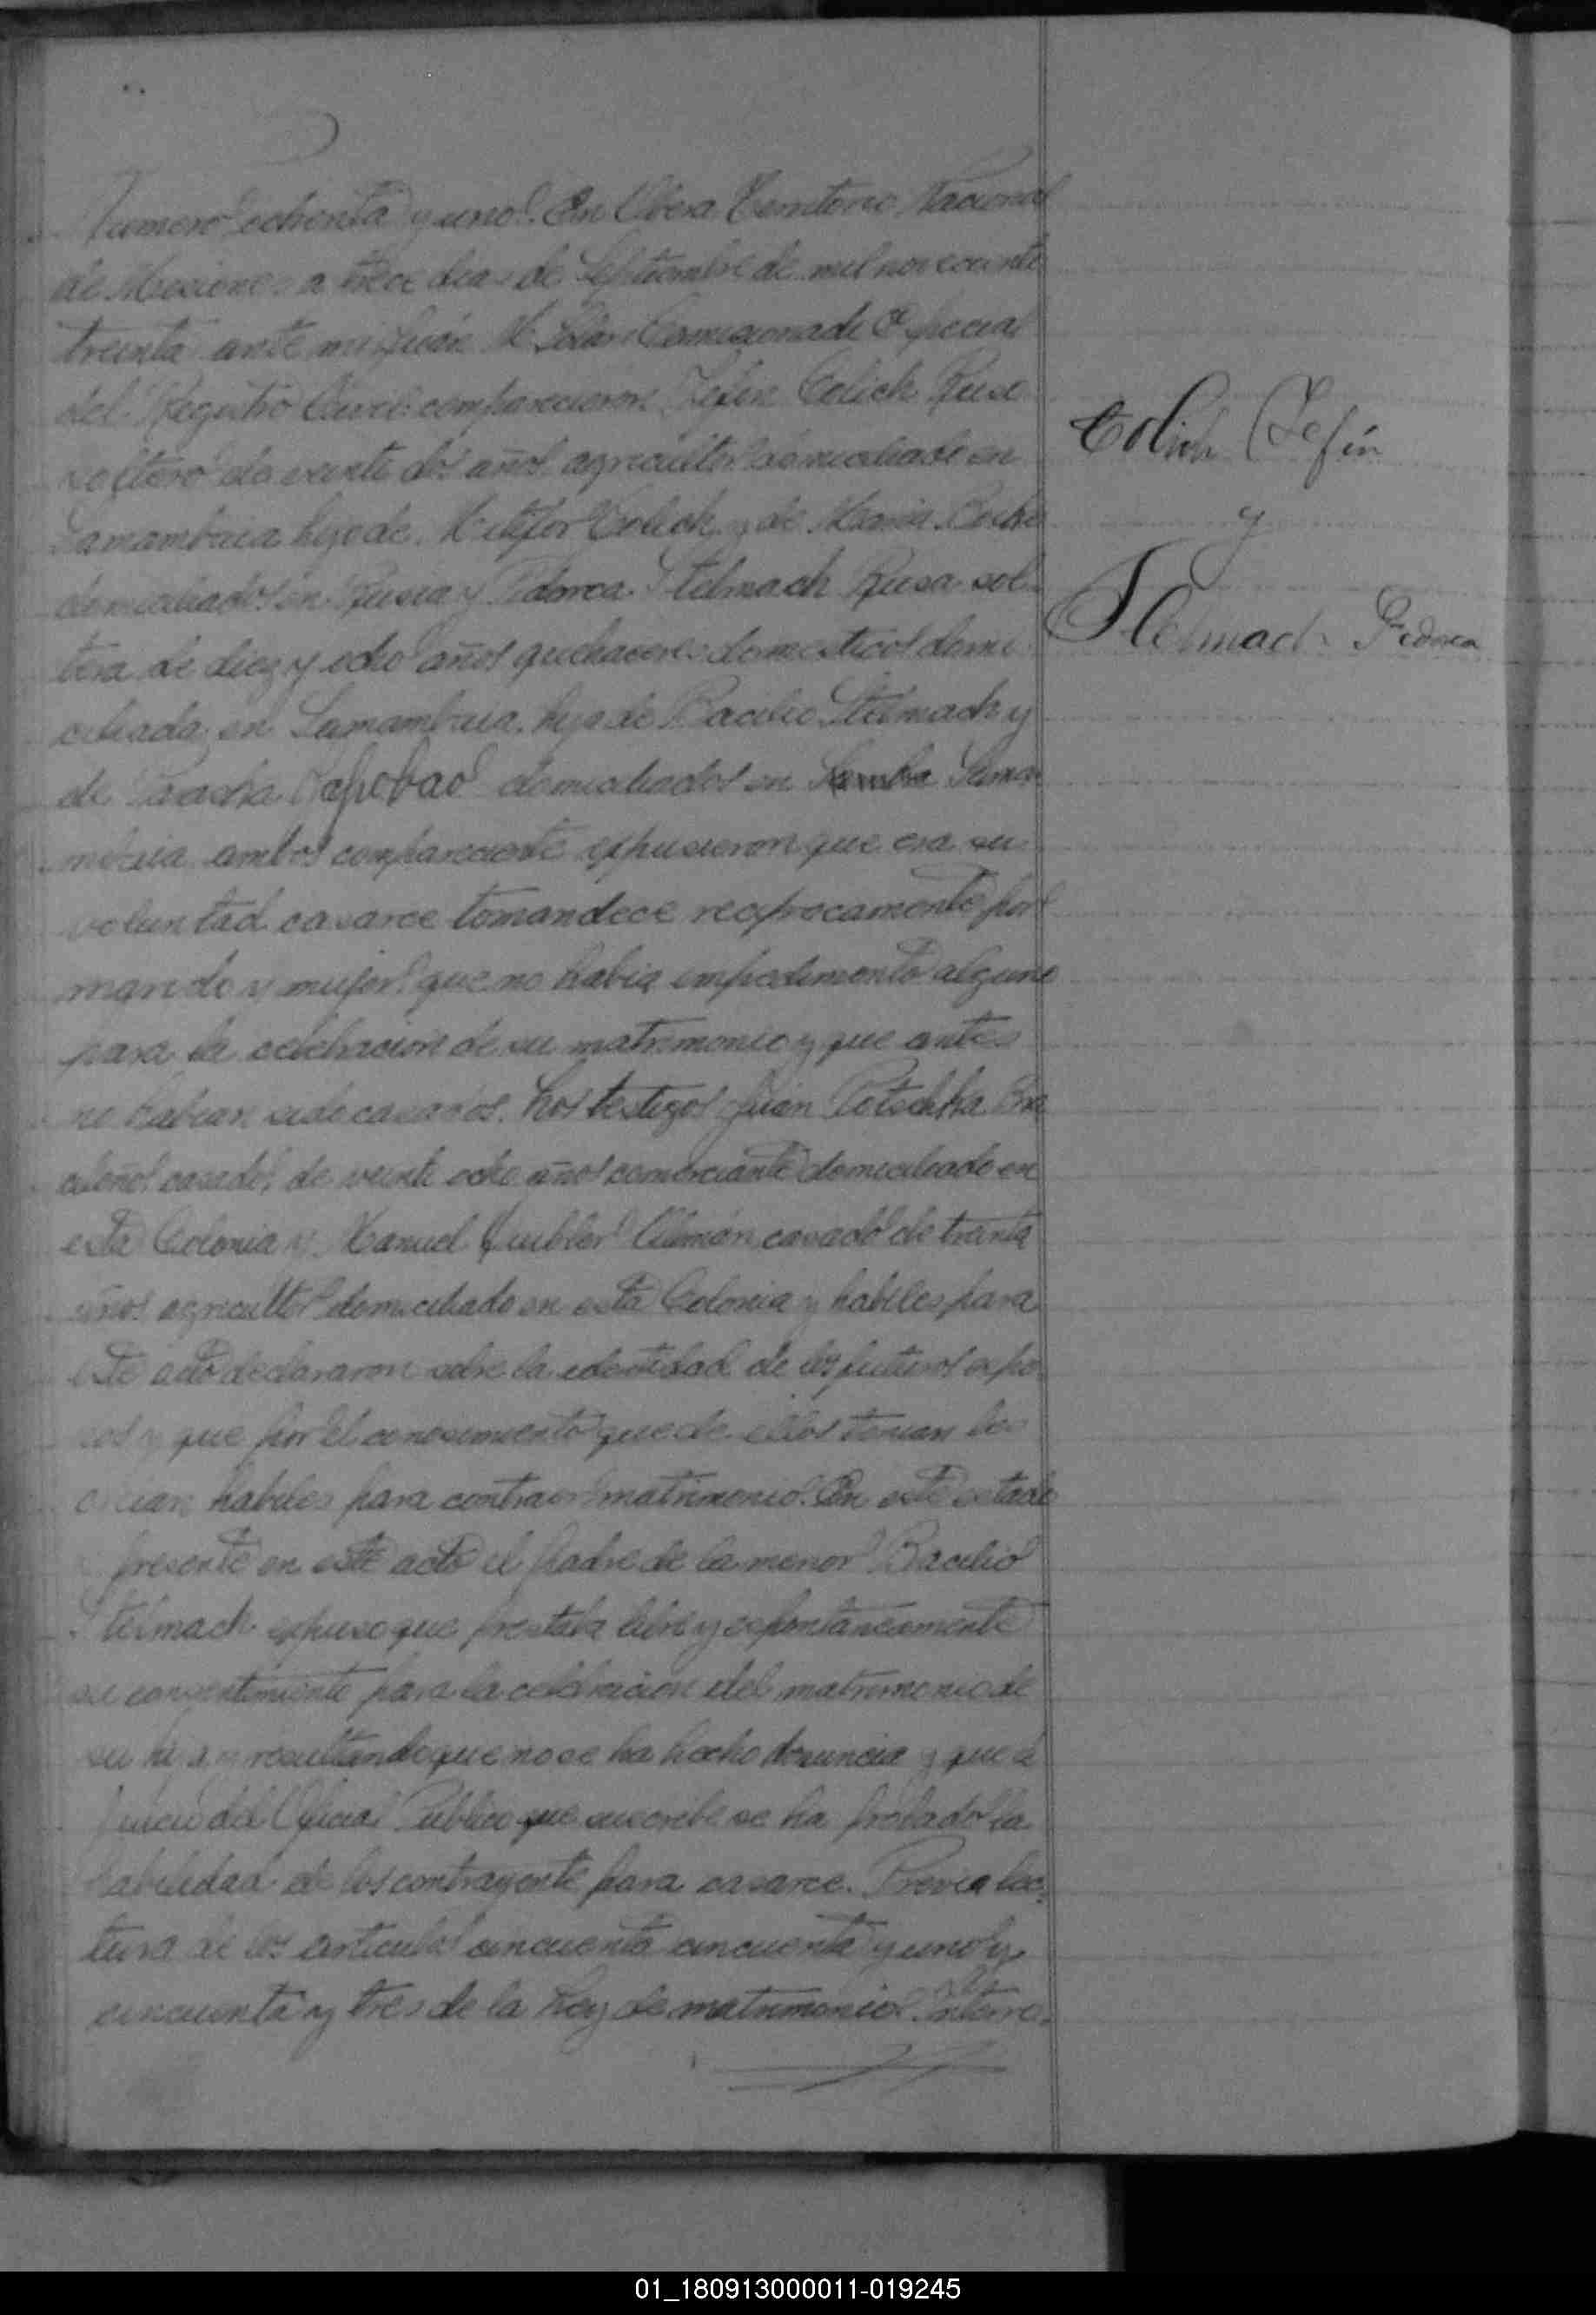 Numero ochenta y uno. En Obera Territorio Nacional
de Misiones a trece dias de Septiembre de mil novecientos
treinta ante mi Juan M. Comisionado Especial
del Registro Civil: comparecieron: Zefin Colich Ruso
soltero de veinte dos años agricultor domiciliado en
Samambaia hijo de Colich y de Maria
domiciliados en Rusia y Fedorca Stelmach Rusa sol-
tera de diez y ocho años quehaceres domesticos domi
ciliada en Samambaia, hija de Bacilio Stelmach y
de domiciliados en Samam
mbaia ambos compareciente expusieron que era su
voluntad casarce tomandoce reciprocamente por
marido y mujer: que no habia impedimento alguno
para la celebracion de su matrimonio y que antes
no habian sido casados. Los testigos Juan Potschka Bra
cileño, casado, de veinte ocho años comerciante domiciliado en
esta Colonia y Manuel Alemán casado de treinta
años agricultor domiciliado en esta Colonia y habiles para
este acto declararon sobre la identidad de los futuros espo
sos y que por el conosimiento que de ellos tenian los
creian habiles para contraer matrimonio. En este estado
presente en este acto el padre de la menor Bacilio
Stelmach expuso que prestaba libre y espontaneamente
su consentimiento para la celebracion del matrimonio de
su hija y resultando que no se ha hecho denuncia y que a
juicio del Oficial Publico que suscribe se ha probado la
habilidad de los contrayente para casarce. Previa lec-
tura de los articulos cincuenta cincuenta y uno y
cincuenta y tres de la Ley de matrimonio. Interro-
Colich Zefin
y
Stelmach Fedorca
01_180913000011-019245